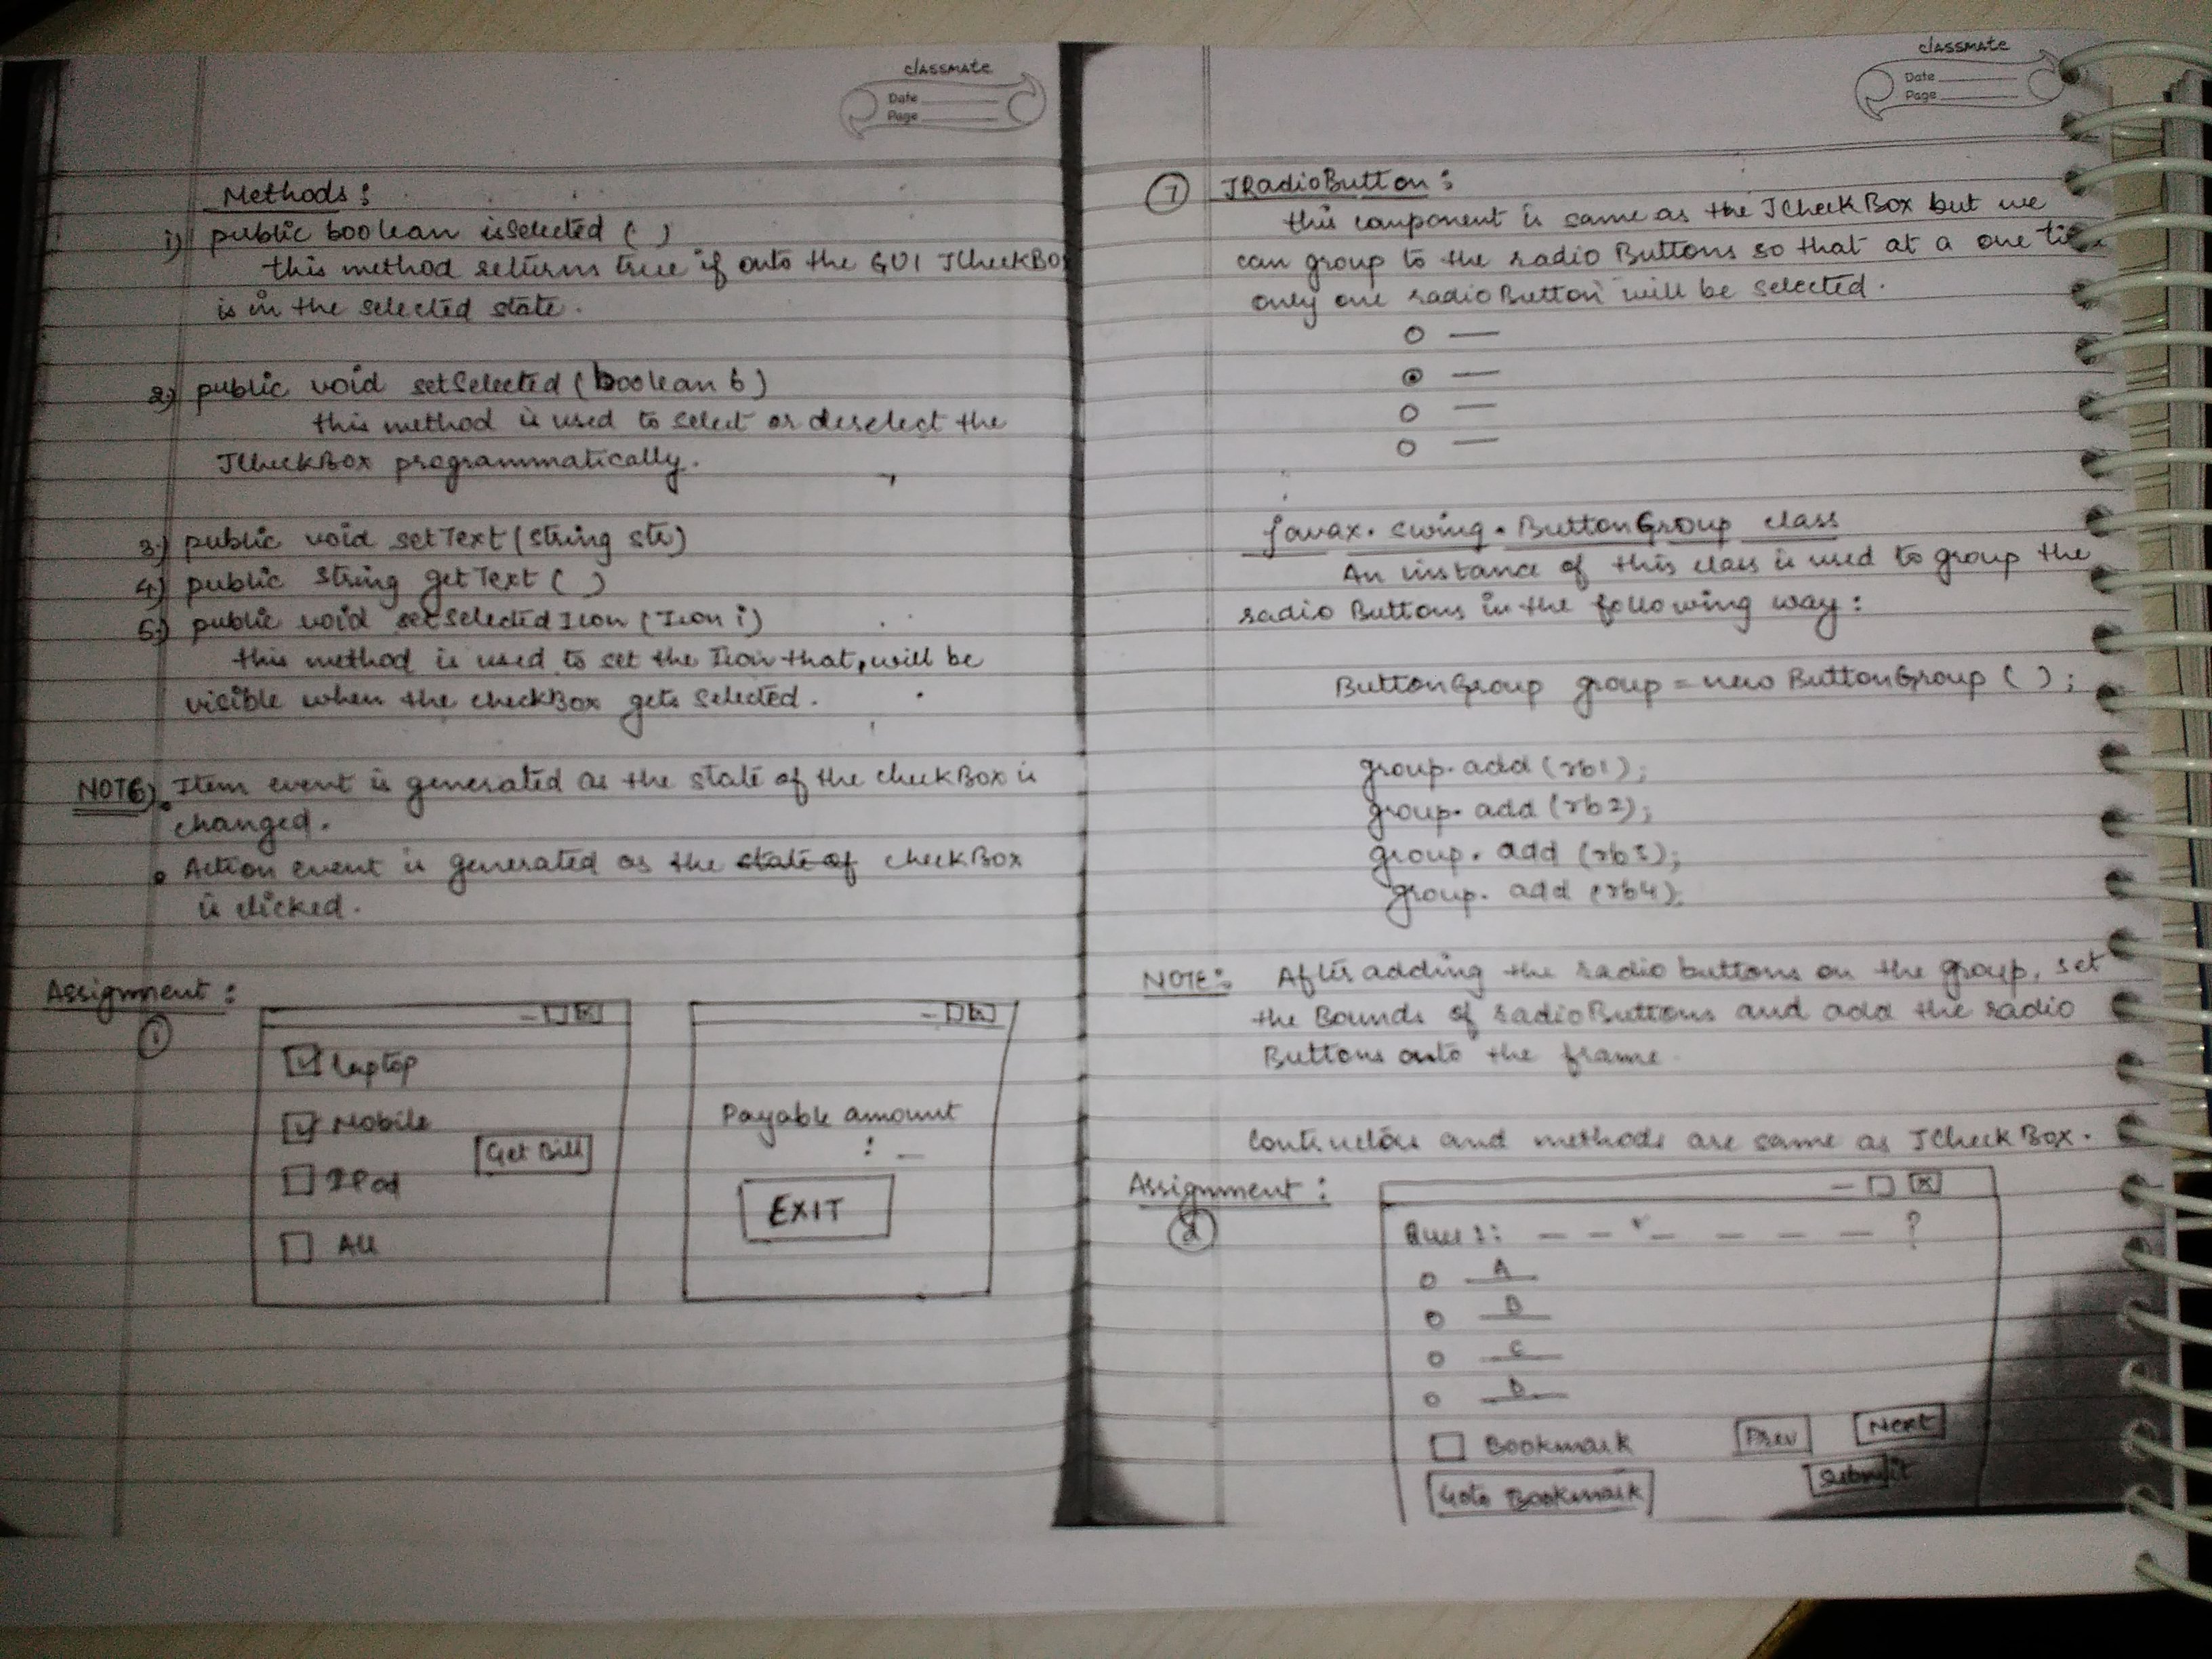 classmate
Date
Page
Methods :
1) public boolean isSelected ( )
this method returns true if onto the GUI JCheckBox
is in the selected state.
2) public void setSelected (boolean b)
this method is used to select or deselect the
JCheckBox programmatically.
3) public void setText (String str)
4) public String getText ( )
5) public void setSelectedIcon (Icon i)
this method is used to set the Icon that, will be
visible when the checkBox gets selected.
NOTE • Item event is generated as the state of the checkBox is
changed.
• Action event is generated as the state of checkBox
is clicked.
Assignment :
1
Laptop
Mobile
Get Bill
IPod
All
Payable amount
: _
EXIT
classmate
Date
Page
7 JRadioButton :
this component is same as the JCheckBox but we
can group to the radio Buttons so that at a one
only one radioButton will be selected.
javax. swing. ButtonGroup class
An instance of this class is used to group the
radio Buttons in the following way :
ButtonGroup group = new ButtonGroup ( ) ;
group. add (rb1);
group. add (rb2);
group. add (rb3);
group. add (rb4);
NOTE: After adding the radio buttons on the group, set
the Bounds of radioButtons and add the radio
Buttons onto the frame
and methods are same as JCheckBox.
Assignment :
2
Ques 1: _ _ _ _ _ _ ?
A
B
C
D
Bookmark
Prev
Next
Goto Bookmark
Submit